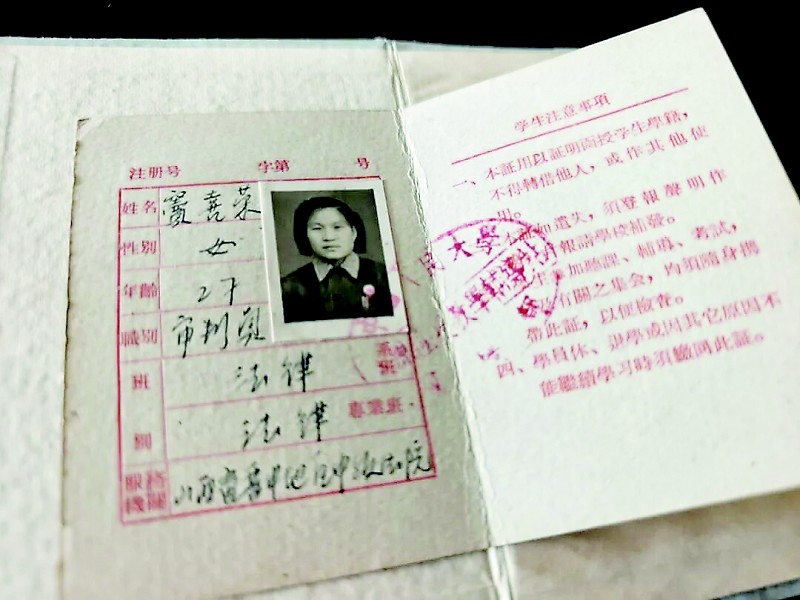 注册号 字第 号
姓名 竇喜荣
性别 女
年齡 27
職别 审判員
班 法律 系
别 法律 專業班
服務機關 山西省晋中地区中級法院
学生注意事項
一、本証用以証明函授学生學籍，
不得轉借他人，或作其他使
用。
遺失，須登報聲明作
報請學校補發。
加聽課、輔導、考試，
有關之集会，均須隨身携
帶此証，以便檢查。
四、學員休、退學或因其它原因不
能繼續学习時須繳回此証。
民大學